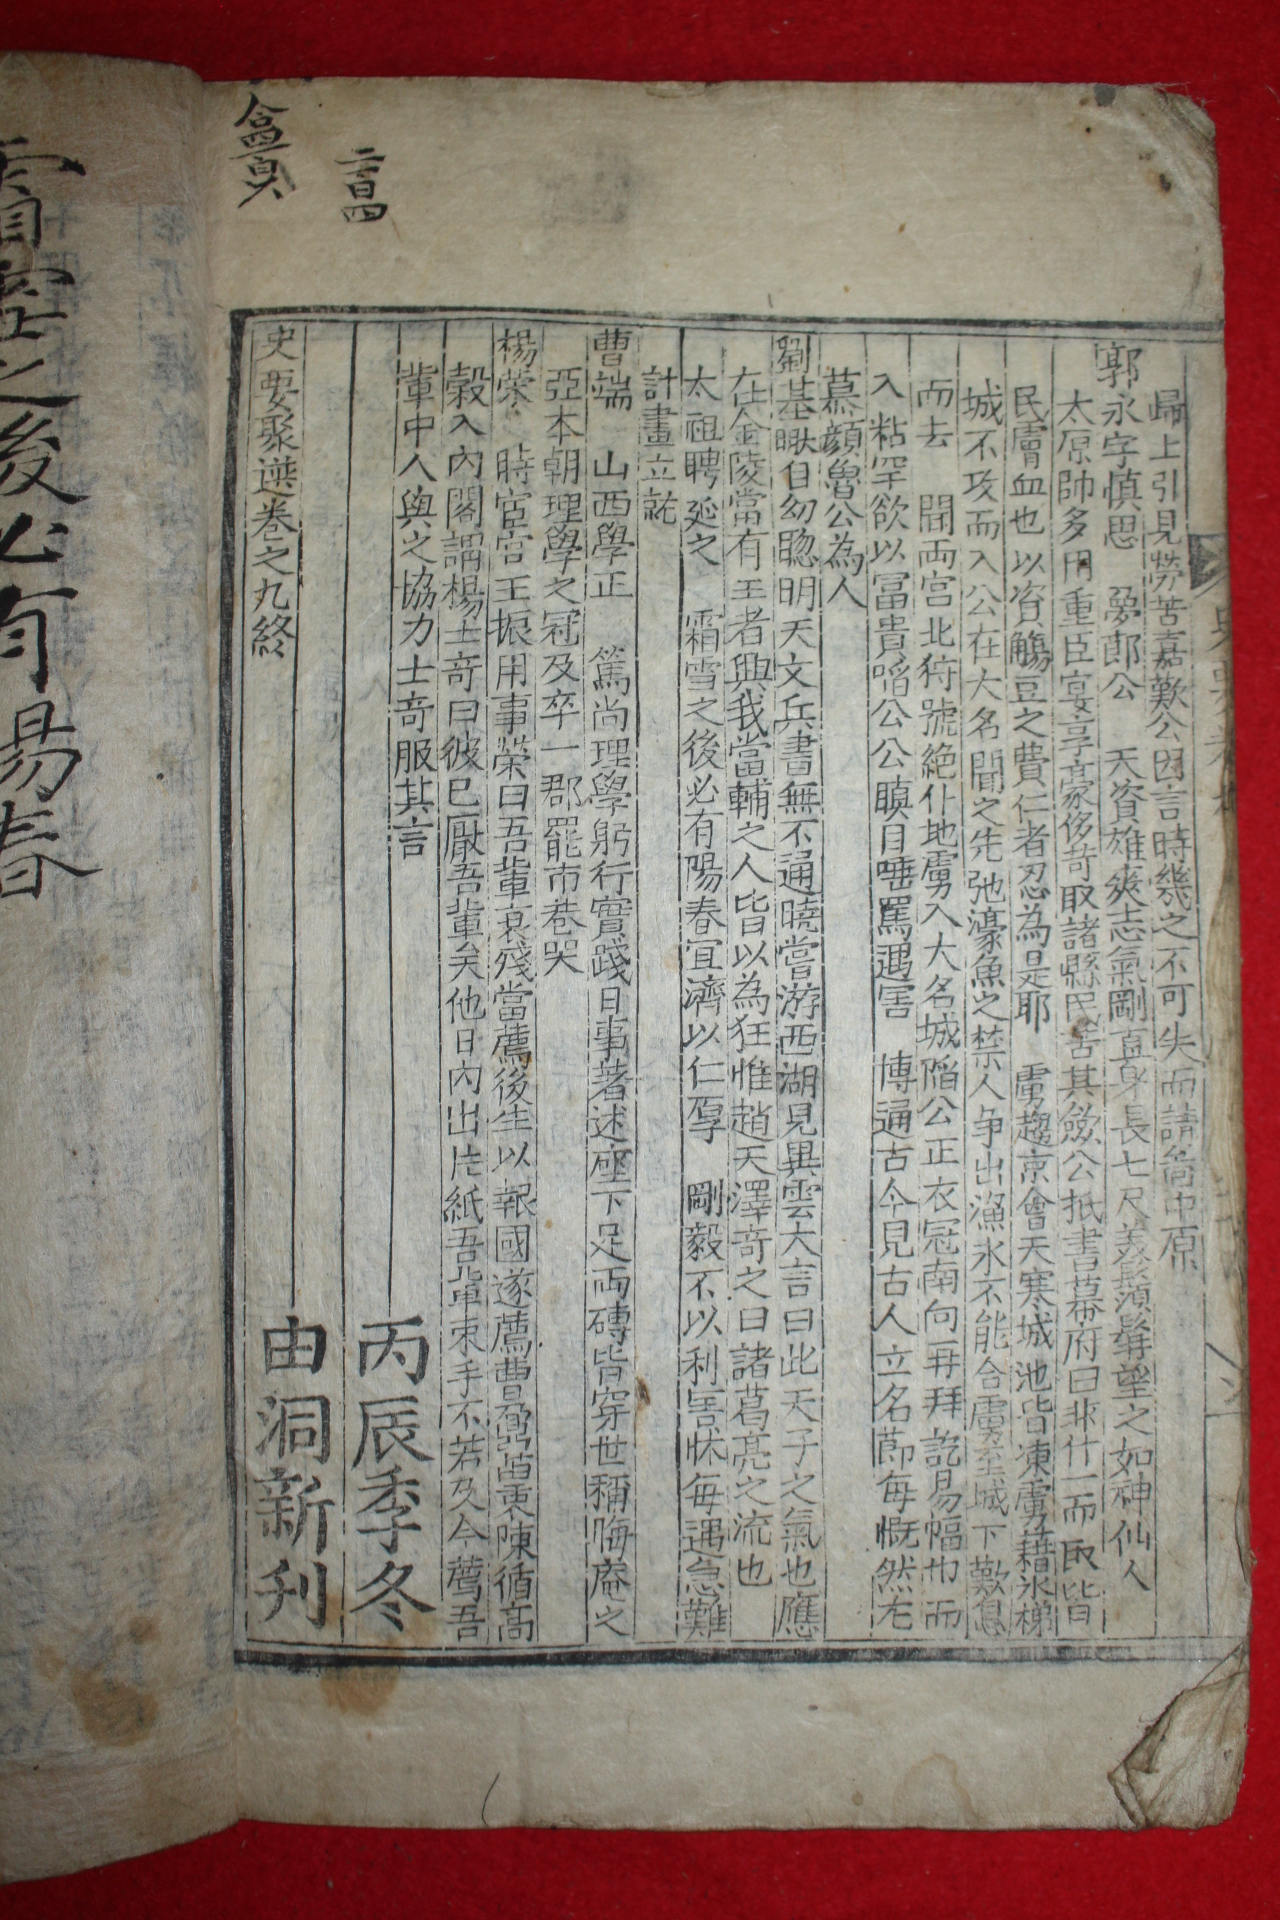 歸上引見勞苦嘉歎公因言時幾之不可失而請啇中原
郭永字愼思 晏郎公 天資雄爽志氣剛直身長七尺美鬚髯望之如神仙人
太原帥多用重臣宴享豪侈苛取諸縣民苦其歛公抵書幕府曰非什一而取皆
民膏血也以資觴豆之費仁者忍為是耶 虜趨京會天寒城池皆凍虜藉氷梯
城不攻而入公在大名聞之先弛濠魚之禁人争出漁氷不能合虜至城下歎息
而去 聞兩宮北狩號絶仆地虜入大名城陷公正衣冠南向再拜訖易幅巾而
入粘罕欲以冨貴啗公公瞋目唾罵遇害 博通古今見古人立名莭每慨然尤
慕顔魯公為人
劉基 自幼聦明天文兵書無不通曉嘗游西湖見異雲大言曰此天子之氣也應
在金陵當有王者興我當輔之人皆以為狂惟趙天澤奇之曰諸葛亮之流也
太祖聘延之 霜雪之後必有陽春宜濟以仁厚 剛毅不以利害怵每遇急難
計畫立就
曹端 山西學正 篤尚理學躬行實踐日事著述座下足兩磚皆穿世稱晦庵之
亞本朝理學之冠及卒一郡罷市巷哭
楊榮 時宦官王振用事榮曰吾輩衰殘當薦後生以報國遂薦曹鼐苗衷陳循高
糓入內閣謂楊士奇曰彼已厭吾輩矣他日內出片紙吾輩束手不若及今薦吾
輩中人與之協力士奇服其言
丙辰季冬
史要聚選卷之九終
由洞新刋
二百四
霜雪之後必有陽春